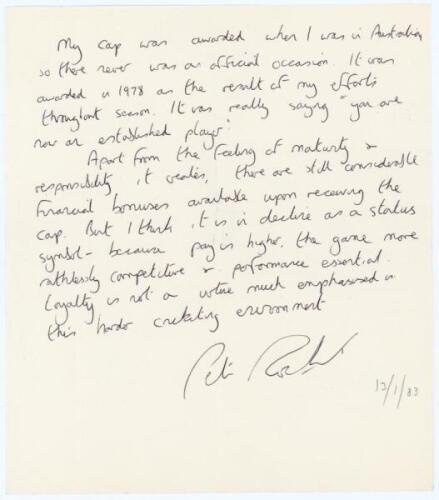 My cap was awarded when I was in Australia,
so there never was an official occasion. It was
awarded in 1978 as the result of my efforts
throughout season. It was really saying "you are
now an established player".
Apart from the feeling of maturity &
responsibility it creates, there are still considerable
financial bonuses available upon receiving the
cap. But I think it is in decline as a status
symbol - because pay is higher, the game more
ruthlessly competitive & performance essential.
Loyalty is not a virtue much emphasised in
this harder cricketing environment
Peter
12/1/83